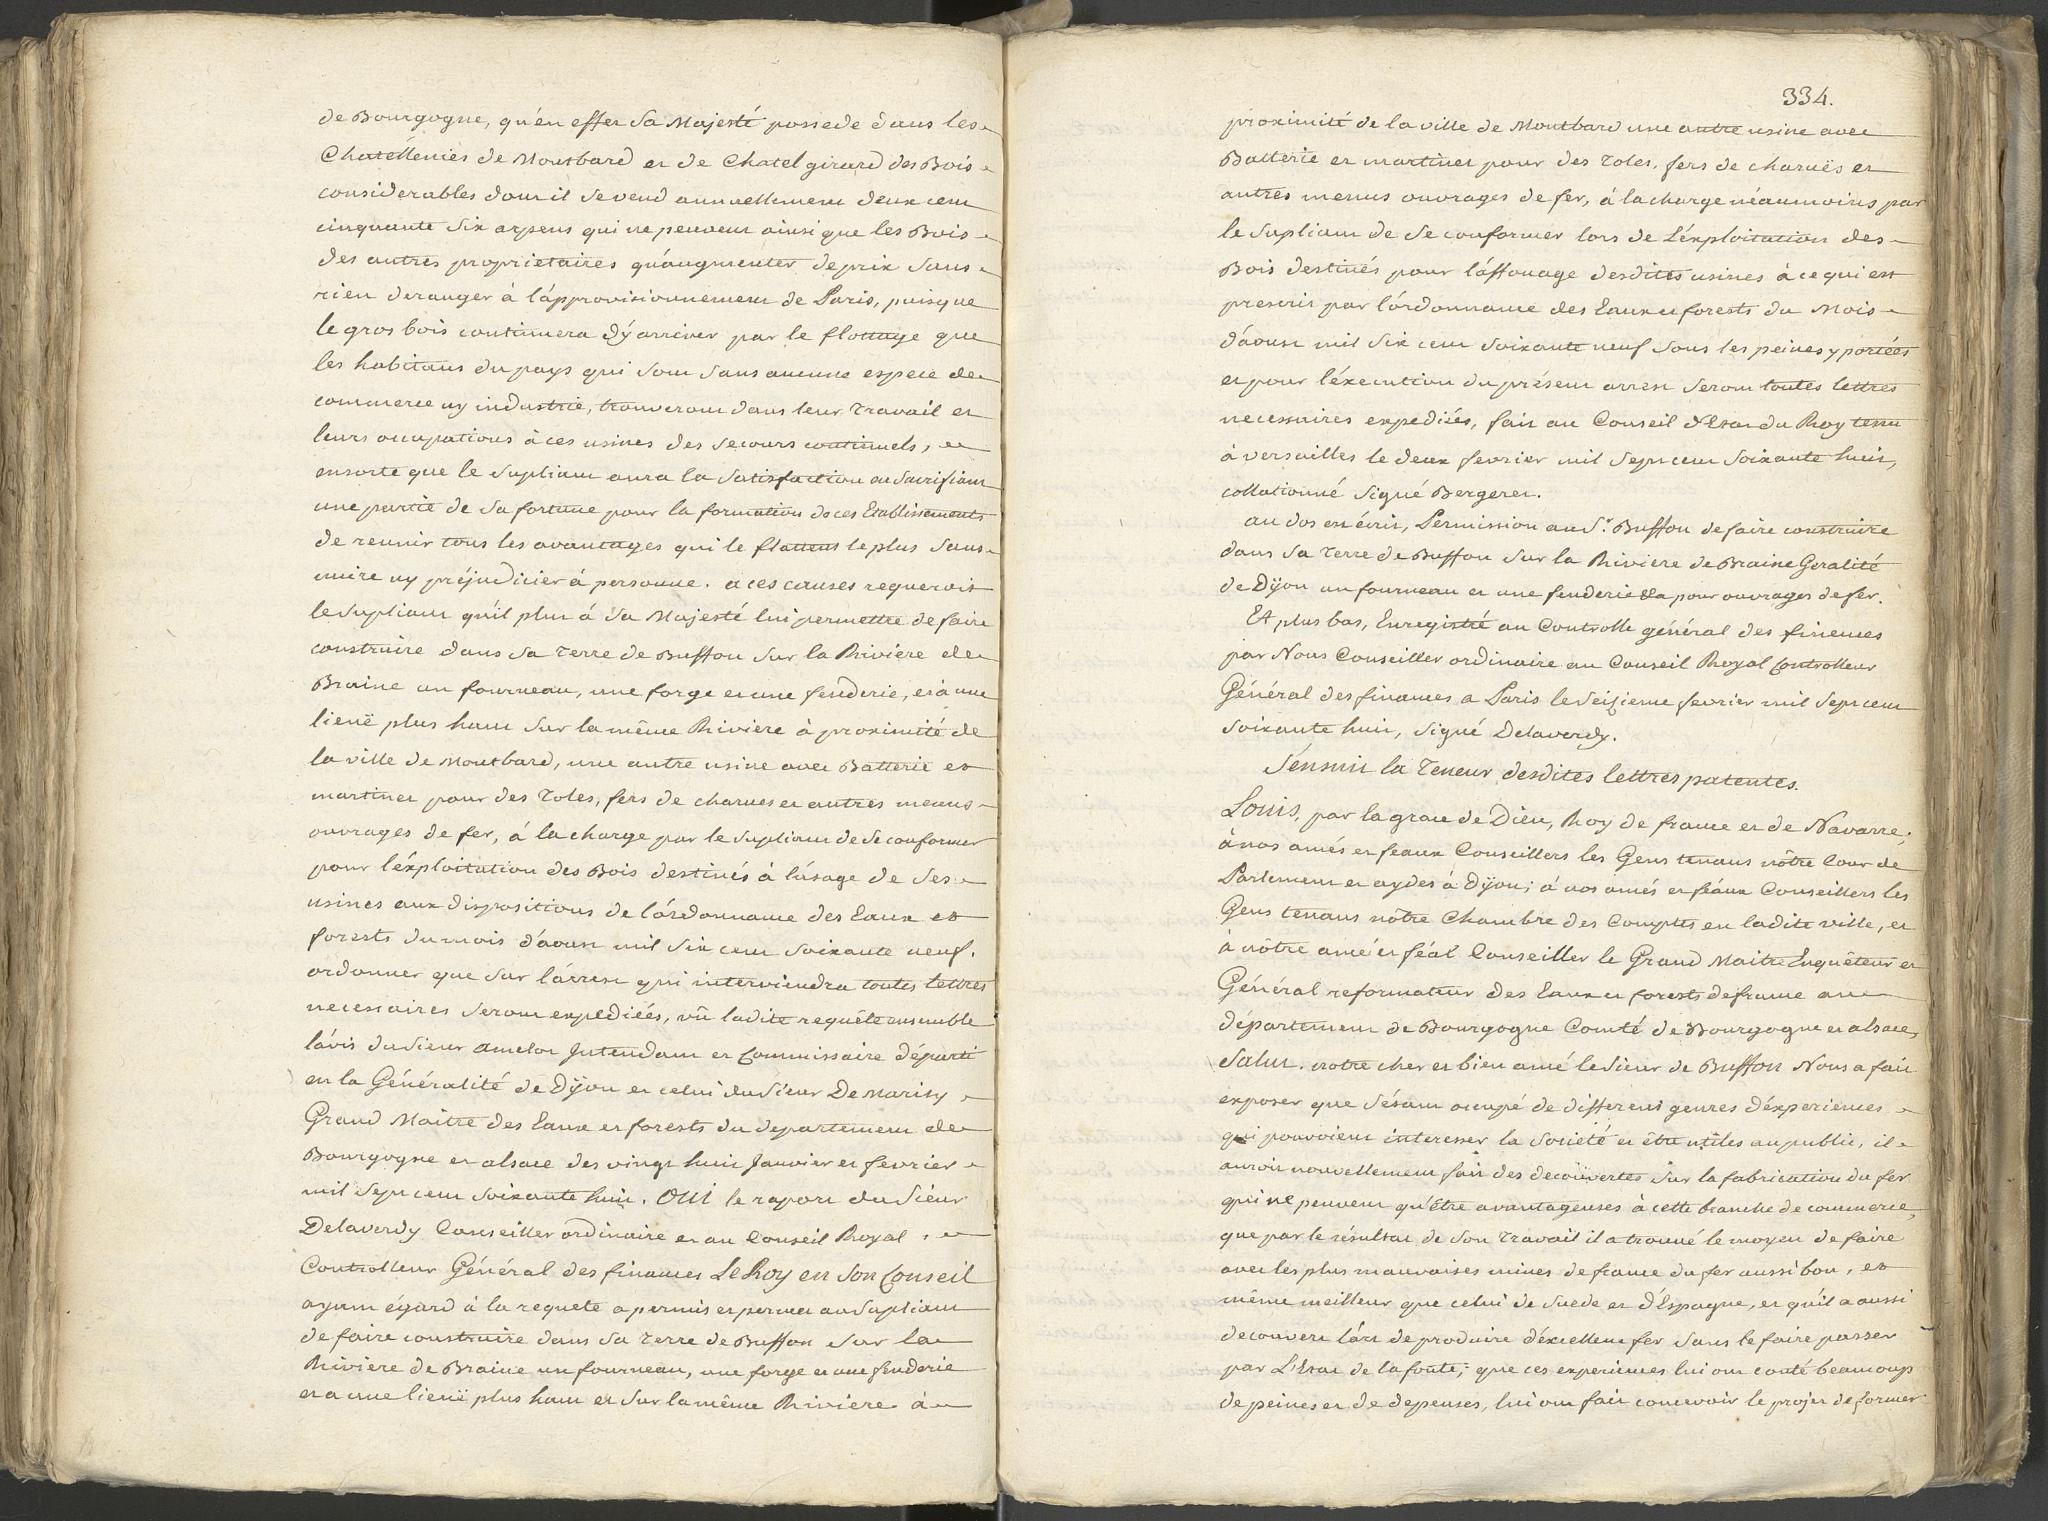 de Bourgogne, qu'en effet Sa Majesté possede dans les
Chatellenies de Montbard et de Chatel girard des Bois
considerables dont il se vend annuellement deux cent
cinquante six arpens qui ne peuvent ainsi que les Bois
des autres proprietaires qu'augmenter de prix sans
rien deranger à l'approvisionnement de Paris, puisque
le gros bois continuera d'y arriver par le flottage que
les habitans du pays qui sont sans aucune espece de
commerce ny industrie, trouveront dans leur travail et
leurs occupations à ces usines des secours continuels,
ensorte que le supliant aura la satisfaction en sacrifiant
une partie de sa fortune pour la formation de ces Etablissements
de reunir tous les avantages qui le flattent le plus sans
nuire ny préjudicier à personne. a ces causes requeroit
le supliant qu'il plut à Sa Majesté lui permettre de faire
construire dans sa terre de Buffon sur la Riviere de
Braine un fourneau, une forge et une fenderie, et à une
lieuë plus haut sur la même Riviere à proximité de
la ville de Montbard, une autre usine avec Batterie et
martinet pour des toles, fers de charues et autres menus
ouvrages de fer, à la charge par le supliant de se conformer
pour l'éxploitation des Bois destinés à l'usage de ses
usines aux dispositions de l'ordonnance des Eaux et
forests du mois d'aoust mil six cent soixante neuf.
ordonner que sur l'arrest qui interviendra toutes lettres
necessaires seront expediées, vû ladite requête ensemble
l'avis du sieur amelot Intendant et Commissaire départi
en la Généralité de Dijon et celui du sieur De Marisy
Grand Maitre des Eaux et forests du departement de
Bourgogne et alsace des vingt huit Janvier et fevrier
mil sept cent soixante huit. OUI le raport du sieur
Delaverdy Conseiller ordinaire et au Conseil Royal,
Controlleur Général des finances Le Roy en son Conseil
ayant égard à la requete a permis et permet au supliant
de faire construire dans sa terre de Buffon sur la
Riviere de Braine un fourneau, une forge et une fenderie
et a une lieuë plus haut et sur la même Riviere à
334.
proximité de la ville de Montbard une autre usine avec
Batterie et martinet pour des toles, fers de charuës et
autres menus ouvrages de fer, à la charge néanmoins par
le supliant de se conformer lors de L'éxploitation des
Bois destinés pour l'affouage desdites usines à ce qui est
prescrit par l'ordonnance des Eaux et forests du Mois
d'aoust mil six cent soixante neuf sous les peines y portées
et pour l'éxecution du présent arrest seront toutes lettres
necessaires expediées, fait au Conseil d'Etat du Roy tenu
à versailles le deux fevrier mil sept cent soixante huit,
collationné signé Bergeret.
au dos est écrit, Permission au Sr. Buffon de faire construire
dans sa terre de Buffon sur la Riviere de Braine Géralité
de Dijon un fourneau et une fenderie &a pour ouvrages de fer.
Et plus bas, Enregistré au Controlle général des finances
par Nous Conseiller ordinaire au Conseil Royal Controlleur
Général des finances a Paris le seizieme fevrier mil sept cent
soixante huit, signé Delaverdy.
S'ensuit la teneur desdites lettres patentes.
Louis, par la grace de Dieu, Roy de france et de Navarre,
à nos amés et feaux Conseillers les Gens tenans nôtre Cour de
Parlement et aydes à Dijon; à nos amés et féaux Conseillers les
Gens tenans nôtre Chambre des Comptes en ladite ville, et
à nôtre amé et féal Conseiller le Grand Maitre Enquêteur et
Général reformateur des Eaux et forests de france au
département de Bourgogne Comté de Bourgogne et alsace,
Salut. notre cher et bien amé le sieur de Buffon Nous a fait
exposer que s'étant occupé de differens genres d'éxperiences
qui pouvoient interesser la societé et être utiles au public, il
auroit nouvellement fait des decouvertes sur la fabrication du fer
qui ne peuvent qu'être avantageuses à cette branche de commerce,
que par le résultat de son travail il a trouvé le moyen de faire
avec les plus mauvaises mines de france du fer aussi bon, et
même meilleur que celui de Suede et d'Espagne, et qu'il a aussi
decouvert l'art de produire d'éxcellent fer sans le faire passer
par L'état de la fonte; que ces experiences lui ont couté beaucoup
de peines et de depenses, lui ont fait concevoir le projet de former